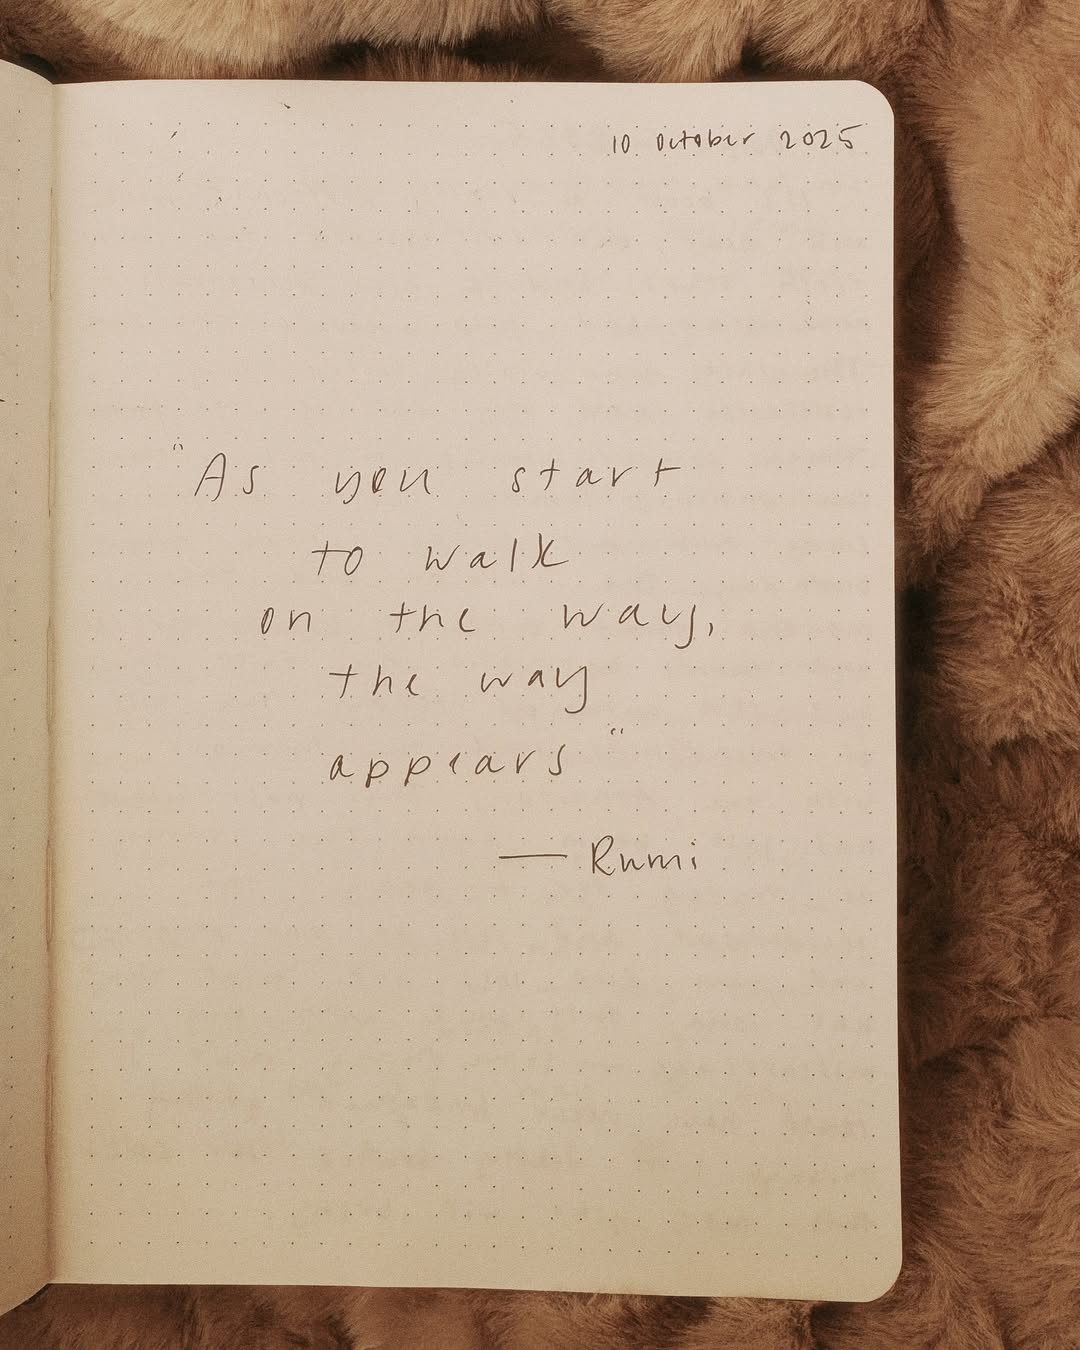 10 October 2025
"As you start
to walk
on the way,
the way
appears"
— Rumi